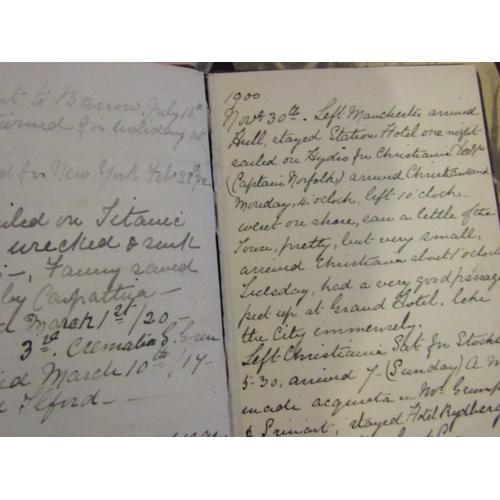 nt to Barrow July 15th
for holiday at
d for New York Feb 28th
iled on Titanic
wrecked & sunk
Fanny saved
by Carpathya —
d March 1st/20 —
3rd. Crematia G. Green
ied March 10th/17 —
Ilford —
1900
Novr 30th. Left Manchester arrived
Hull, stayed Station Hotel one night
sailed on Hydro for Christiania
(Captain Norfolk) arrived Christiansand
Monday, 4 o'clock, left 10 o'clock
went on shore, saw a little of the
Town, pretty, but very small,
arrived Christiania about 1 o'clock
Tuesday, had a very good passage
put up at Grand Hotel, like
the City immensely.
Left Christiania Sat for Stockh
5-30, arrived 7- (Sunday) A.M
made acquaita n Mr
& stayed Hotel Rydberg